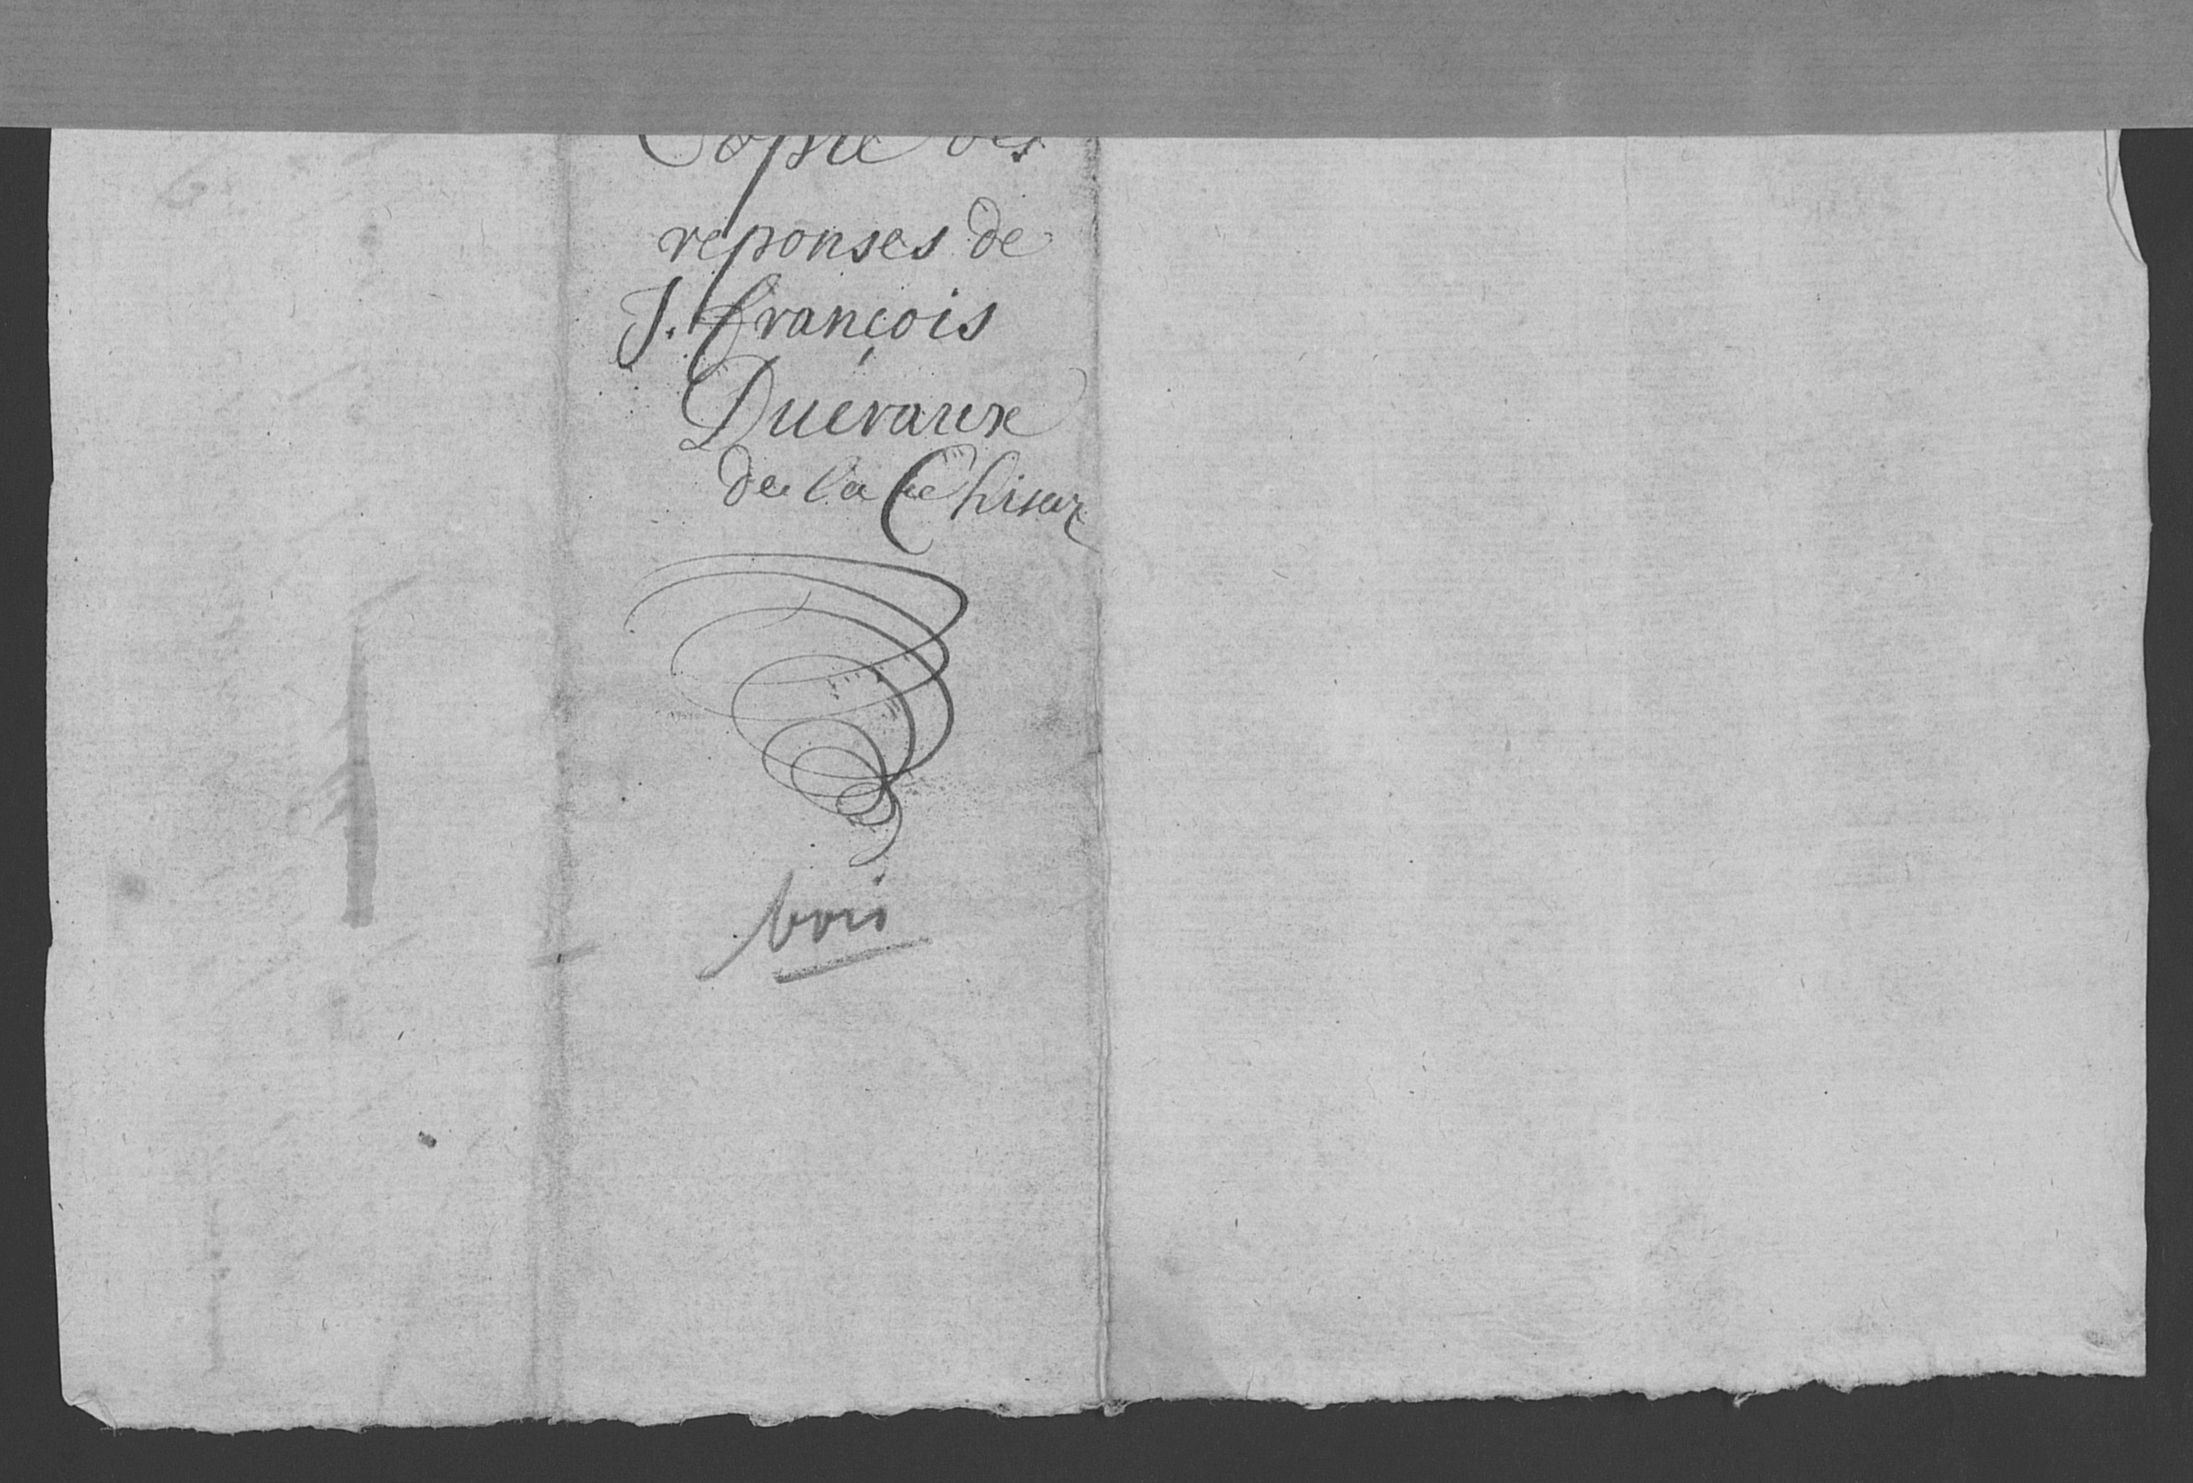 Copie des
reponses de
J. François
Dueraux
de la Chiser
bois